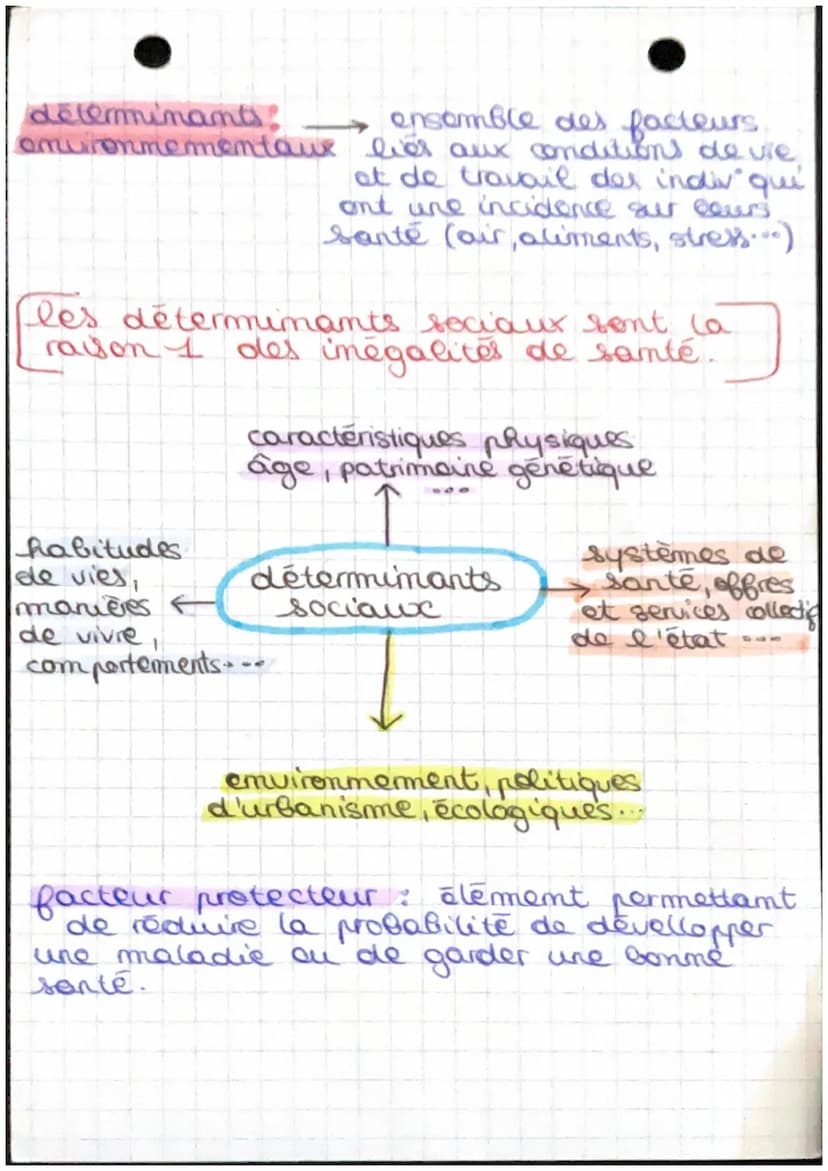 déterminants : → ensemble des facteurs
environnementaux liés aux conditions de vie
et de travail des indiv° qui
ont une incidence sur leurs
santé (air, aliments, stress...)
[les déterminants sociaux sont la
raison 1 des inégalités de santé.]
caractéristiques physiques
âge, patrimoine génétique
...
habitudes
de vies,
manières
de vivre,
comportements...
déterminants
sociaux
systèmes de
santé, offres
et services collectif
de l'état ...
environnement, politiques
d'urbanisme, écologiques...
facteur protecteur : élément permettant
de réduire la probabilité de développer
une maladie ou de garder une bonne
santé.